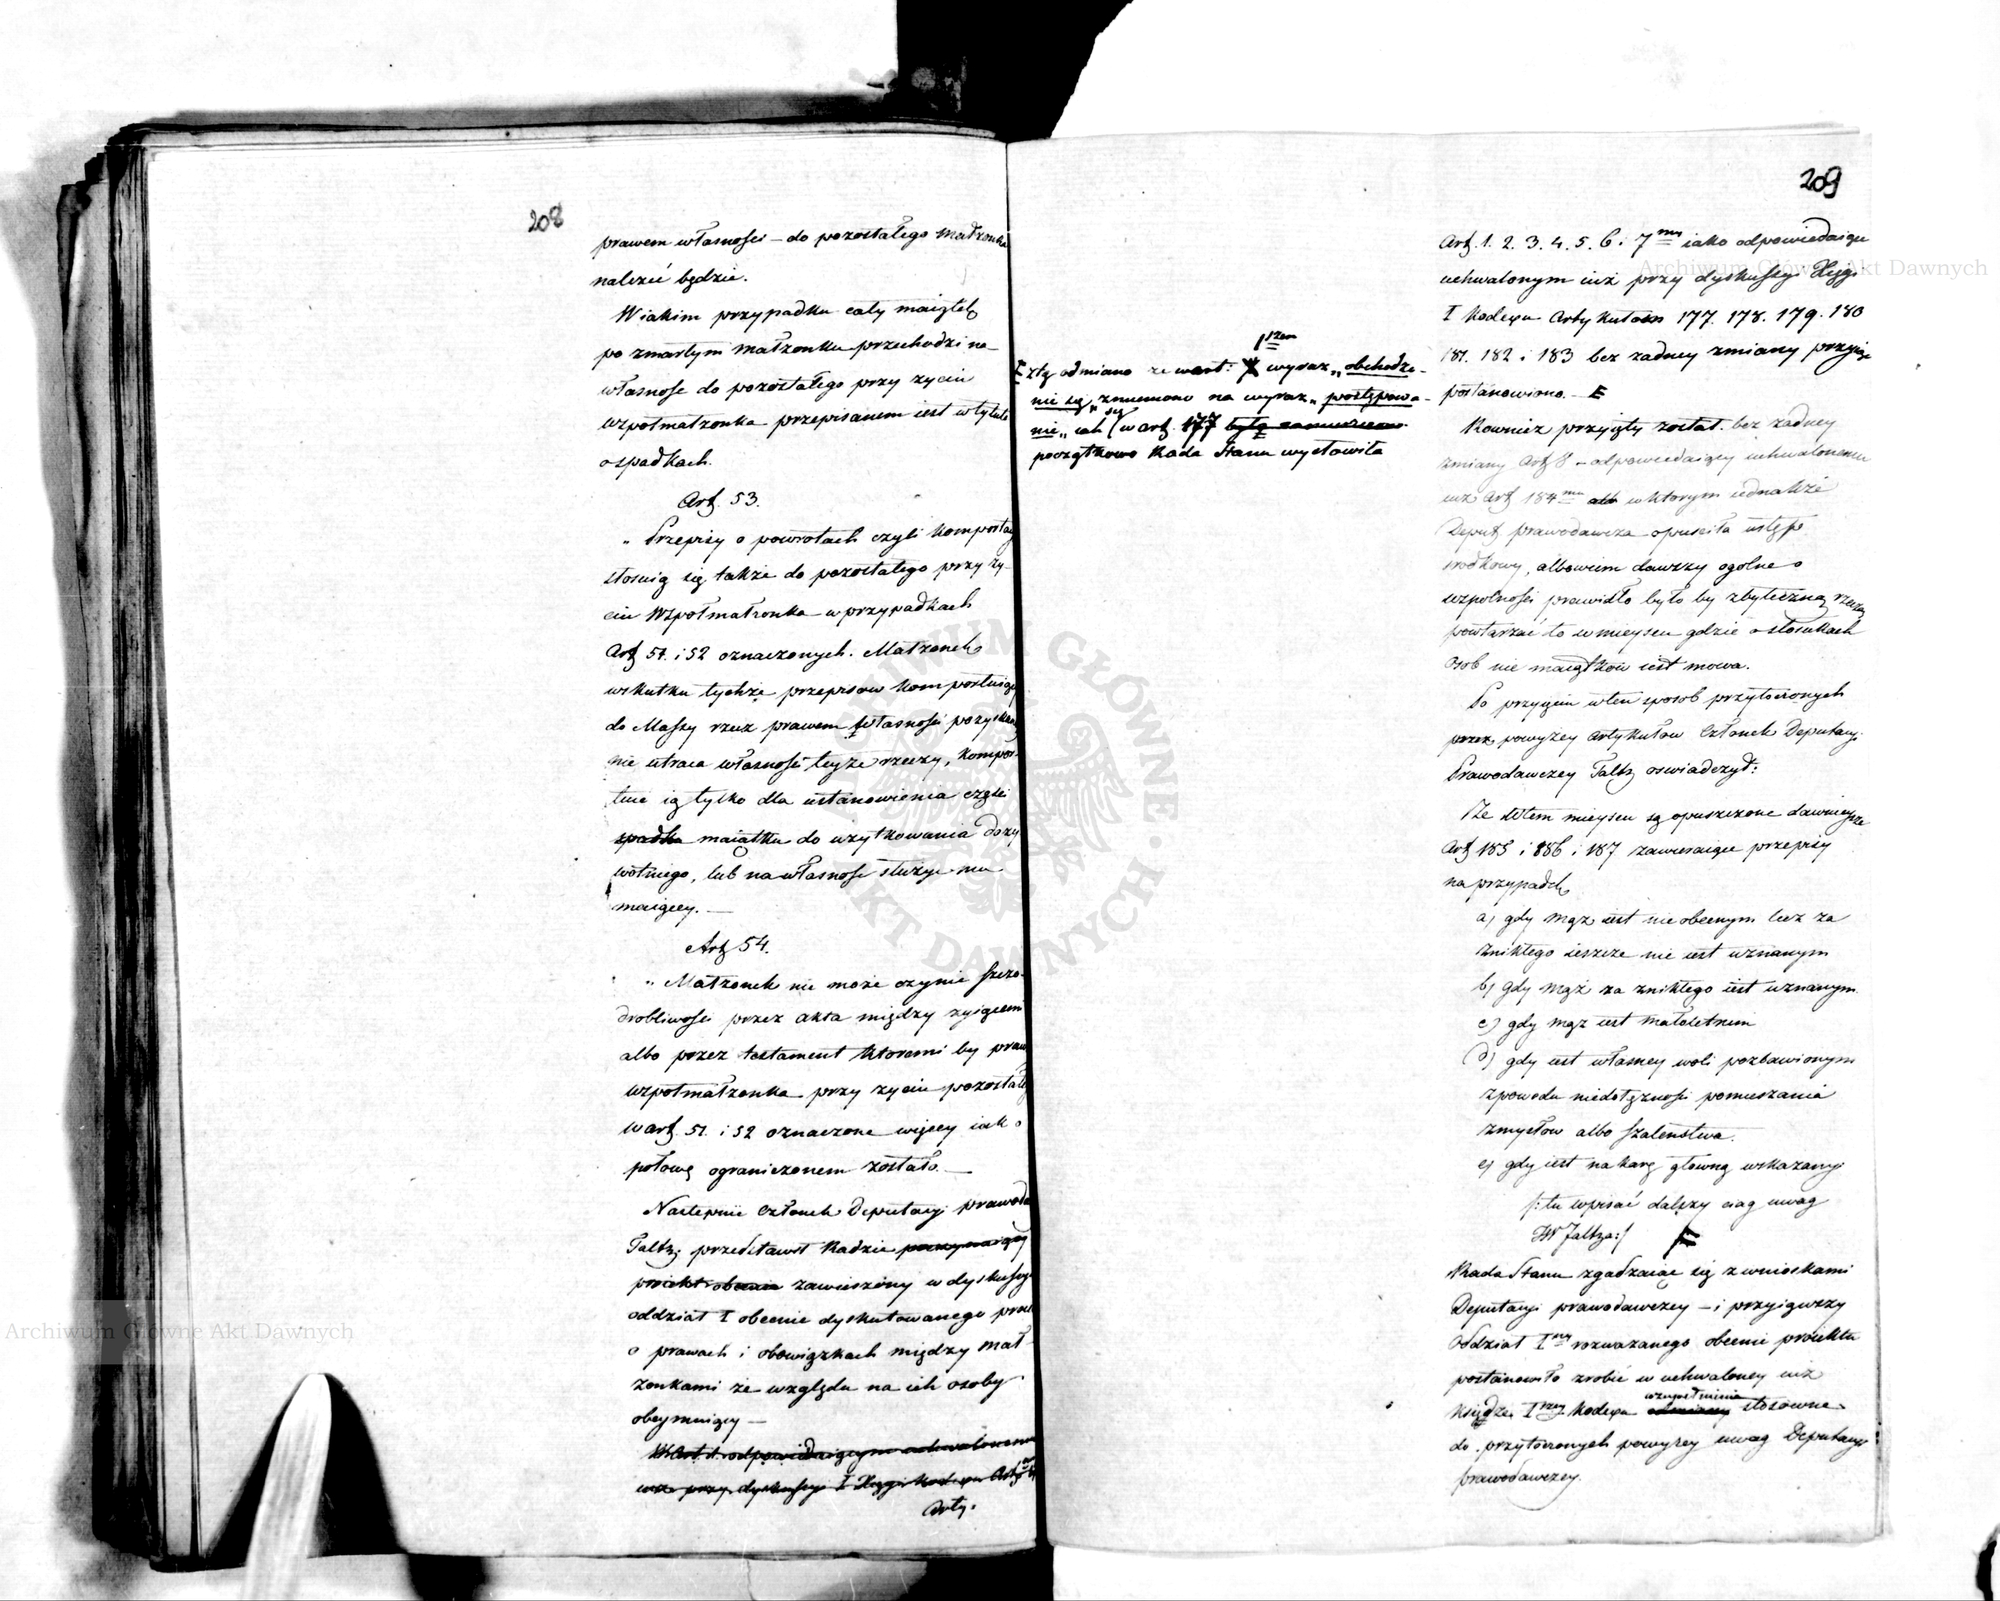 208
prawem własności – do pozostałego Małżonka
należeć będzie.
W iakim przypadku cały maiątek
po zmarłym Małżonku przechodzi na
własność do pozostałego przy życiu
wspołmałżonka przepisanem iest w tytule
o spadkach.
Art. 53.
„ Przepisy o powrotach czyli kompor
stosuią się także do pozostałego przy ży-
ciu Wspołmałżonka w przypadkach
Art 51. i 52 oznaczonych. Małżonek
wskutku tychże przepisow komportuiąc
do Massy rzecz prawem własności pozyskaną
nie utraca własności teyże rzeczy, kompor-
tuie ią tylko dla ustanowienia części
spadku maiątku do użytkowania doży
wotniego, lub na własność służyć mu
maiącey. —
Art 54.
„ Małżonek nie może czynić szczo-
drobliwości przez akta między żyiącemi
albo przez testament ktoremi by prawo
wspołmałżonka przy życiu pozostałe
w art. 51. i 52 oznaczone więcey iak o
połowę ograniczonem zostało. —
Następnie Członek Deputacyi prawoda
Faltz: przedstawił Radzie
proiekt obecnie zawieszony w dyskussyi
oddział I obecnie dyskutowanego proie
o prawach i obowiązkach między mał-
żonkami ze względu na ich osoby
obeymuiący —
odpowiadaiącym uchwalonemu
iuż przy dyskussyi I Xięgi Kodexu Art
Arty.
209
Art. 1. 2. 3. 4. 5. 6. i 7my iako odpowiedaiące
uchwalonym iuż przy dyskussyi Xięgi
I Kodexu Artykułom 177. 178. 179. 180
181. 182 i 183 bez żadney zmiany przyiąć
postanowiono. — F
Rownież przyięty został bez żadney
zmiany Art 8 – odpowiedaiący uchwalonemu
iuż Art 184mu w ktorym iednakże
Deput prawodawcza opuściła ustęp
srodkowy, albowiem dawszy ogolne o
wspolności prawidło było by zbyteczną rzeczą
powtarzać to w mieyscu gdzie o stosunkach
osob nie maiątkow iest mowa.
Po przyięciu w ten sposob przytoczonych
przez powyżey Artykułow Członek Deputacyi
Prawodawczey Faltz oswiadczył:
Że w tem mieyscu są opuszczone dawnieysze
Art 185 i 186 i 187 zawieraiące przepisy
na przypadek
a) gdy mąż iest nieobecnym lecz za
znikłego ieszcze nie iest uznanym
b) gdy mąż za znikłego iest uznanym.
c) gdy mąż iest małoletnim
d) gdy iest własney woli pozbawionym
z powodu niedołężności pomieszania
zmysłow albo szaleństwa.
e) gdy iest na karę głowną wskazany
/: tu wpisać dalszy ciąg uwag
JW Faltza :/ F
Rada Stanu zgadzaiąc się z wnioskami
Deputacyi prawodawczey – i przyiąwszy
Oddział Iszy rozważanego obecnie proiektu
postanowiła zrobić w uchwaloney iuż
Księdze Iszey Kodexu uzupełnienie odmiany stosowne
do przytoczonych powyżey uwag Deputacyi
prawodawczey.
1szem
F z tą odmianą że w art: wyraz „obchodze-
nie się„ zmieniono na wyraz „postępowa-
nie„ iak się w art. 177
początkowo Rada Stanu wysłowiła
Archiwum Główne Akt Dawnych
Archiwum Główne Akt Dawnych
ARCHIWUM GŁÓWNE AKT DAWNYCH